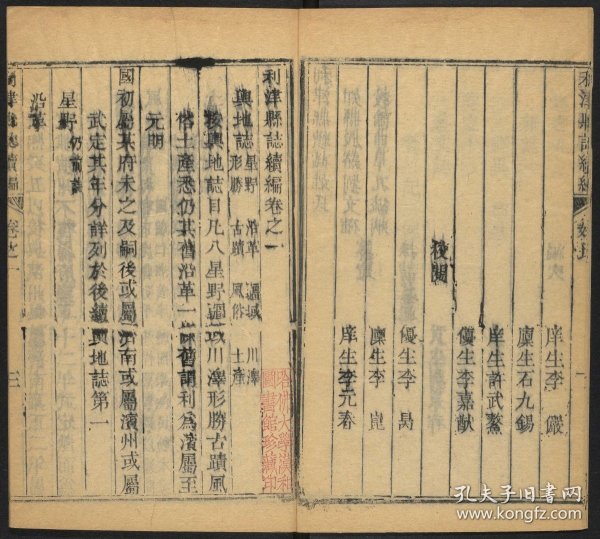 利津縣志續編
庠生李 儼
廩生石九錫
庠生許武鰲
優生李嘉猷
後閱
優生李 昺
廩生李 崑
庠生李元春
利津縣誌續編卷之一
輿地誌 星野 沿革 疆域 川澤
形勝 古蹟 風俗 土產
按輿地誌目凡八星野疆域川澤形勝古蹟風
俗土產悉仍其舊沿革一條舊謂利為濱屬至
元明
國初屬某府未之及嗣後或屬濟南或屬濱州或屬
武定其年分詳列於後續輿地誌第一
星野 仍前誌
沿革
卷之一
三
孔夫子旧书网
www.kongfz.com